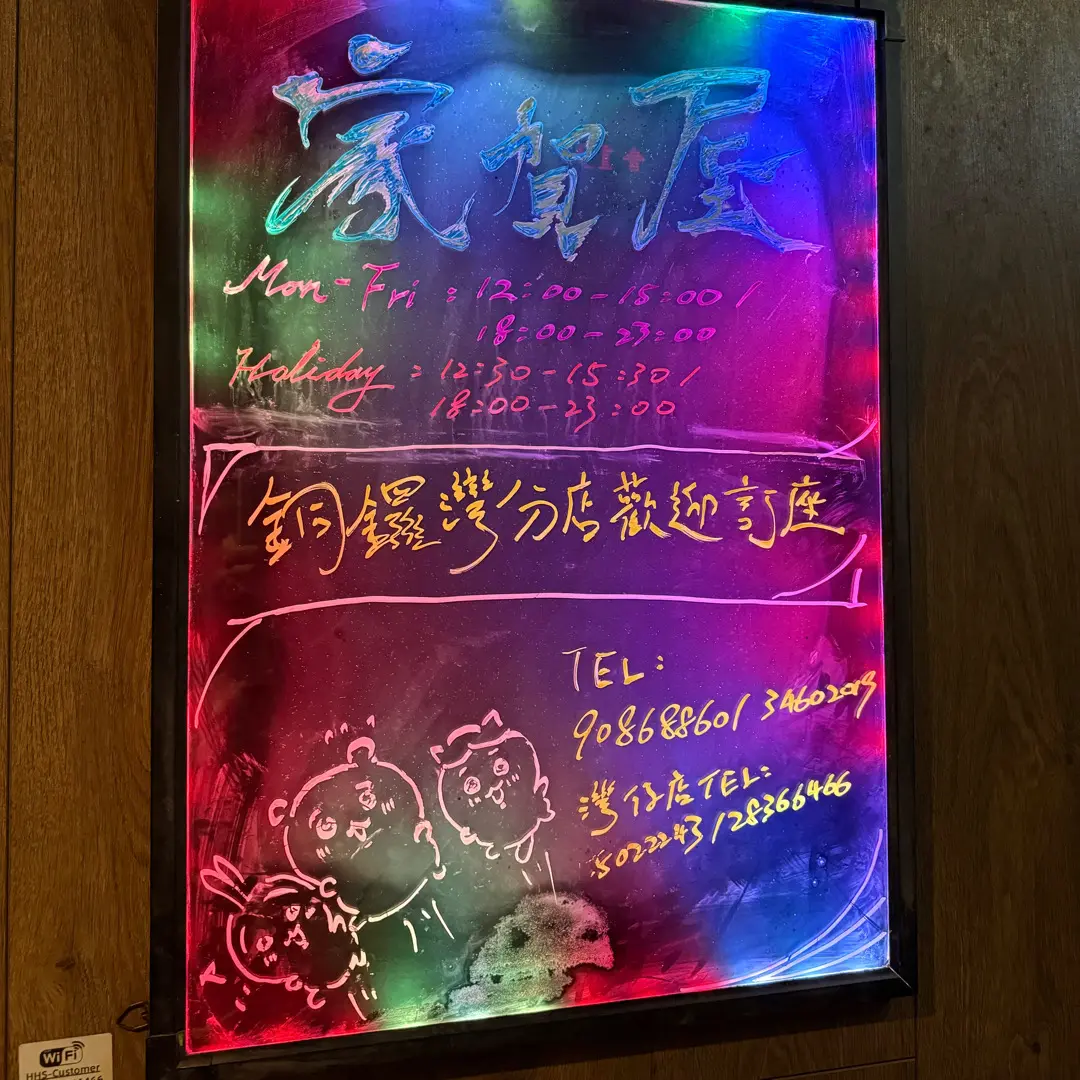 賀屋
Mon-Fri : 12:00-15:00 /
18:00-23:00
Holiday : 12:30-15:30 /
18:00-23:00
銅鑼灣分店歡迎訂座
TEL:
90868860 / 34602019
灣仔店TEL:
5022243 / 28366466
WiFi
HHS-Customer